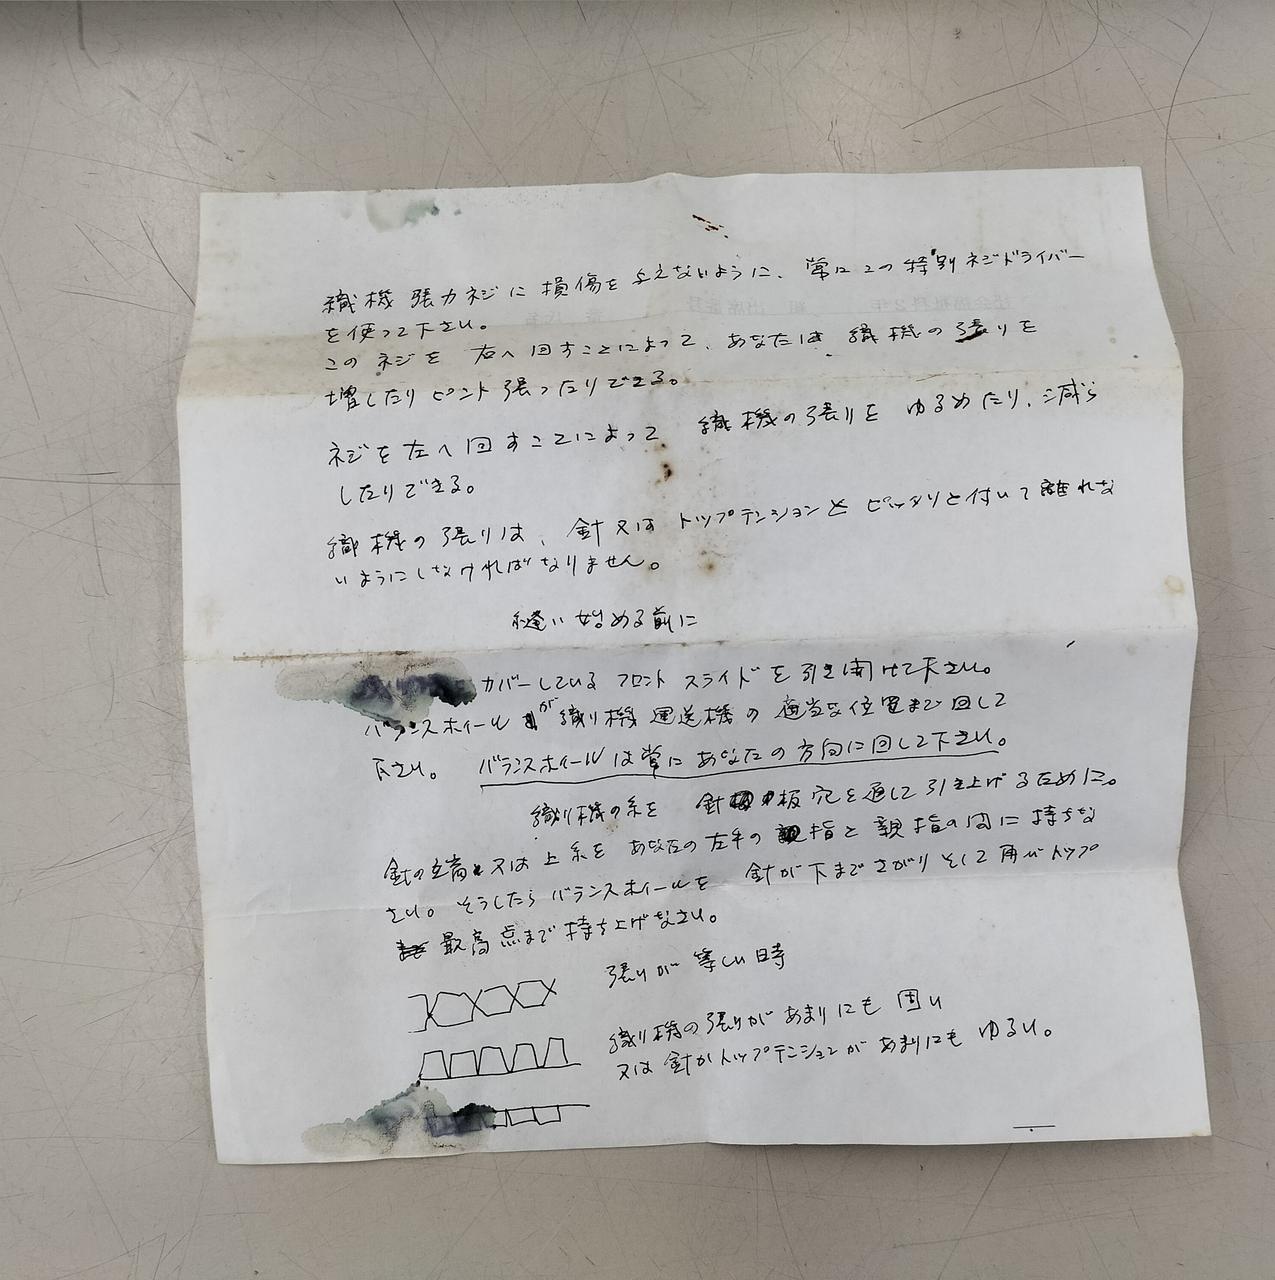 織機 張力ネジに 損傷を与えないように、常にこの特別ネジドライバー
を使って下さい。
このネジを 右へ回すことによって、あなたは 織機の張りを
増したりピント張ったりできる。
ネジを左へ回すことによって 織機の張りを ゆるめたり、減らし
したりできる。
織機の張りは、針又は トップテンションと ピッタリと付いて離れな
いようにしなければなりません。
縫い始める前に
カバーしている フロント スライドを引き開けて下さい。
バランスホイールが織り機 運送機の 適当な位置まで回して
下さい。 バランスホイールは常に あなたの方向に回して下さい。
織り機の糸を 針の板穴を通して引き上げるために。
針の 又は 上糸を あなたの左手の 指と親指の間に 持ちな
さい。そうしたらバランスホイールを 針が下までさがりそして再びトップ
最高点まで持ち上げなさい。
張りが 等しい時
織り機の張りがあまりにも 固い
又は 針かトップテンションがあまりにも ゆるい。